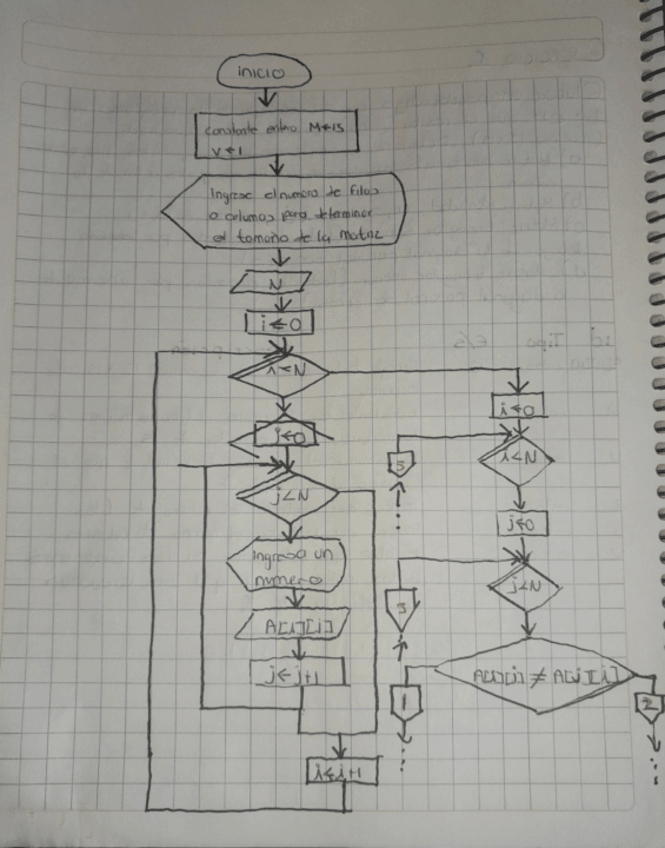 inicio
Constante entero M←15
V←1
Ingrese el numero de filas
o columas para determinar
el tamaño de la matriz
N
i←0
i<N
j←0
j<N
Ingresa un
numero
A[i][j]
j←j+1
i←i+1
i←0
i<N
j←0
j<N
A[i][j] ≠ A[j][i]
1
2